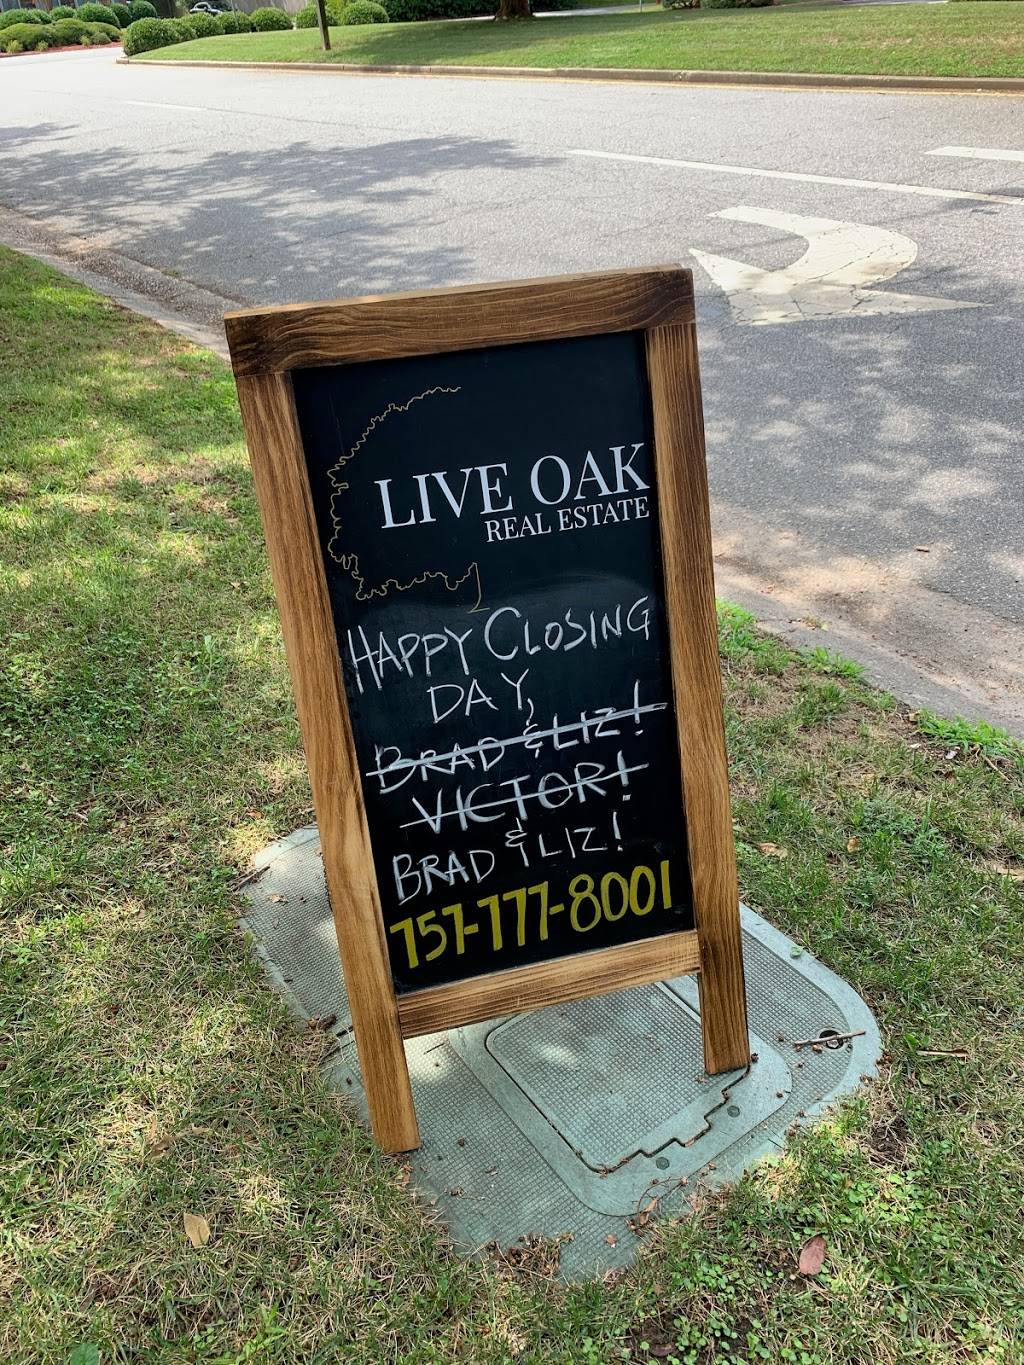 LIVE OAK
REAL ESTATE
HAPPY CLOSING
DAY,
BRAD & LIZ!
VICTOR!
BRAD & LIZ!
757-777-8001